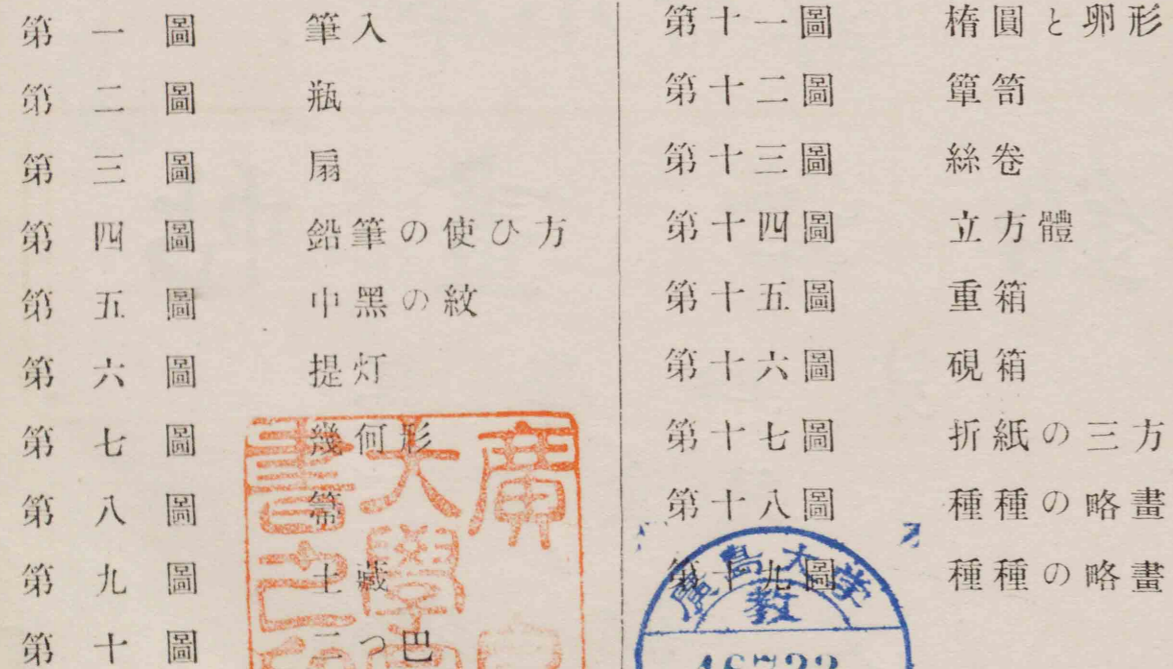 第一圖 筆入
第二圖 瓶
第三圖 扇
第四圖 鉛筆の使ひ方
第五圖 中黑の紋
第六圖 提灯
第七圖 幾何形
第八圖 箒
第九圖 土藏
第十圖 二つ巴
第十一圖 楕圓と卵形
第十二圖 簞笥
第十三圖 絲卷
第十四圖 立方體
第十五圖 重箱
第十六圖 硯箱
第十七圖 折紙の三方
第十八圖 種種の略畫
第十九圖 種種の略畫
廣
大學
書之印
廣島大学
教